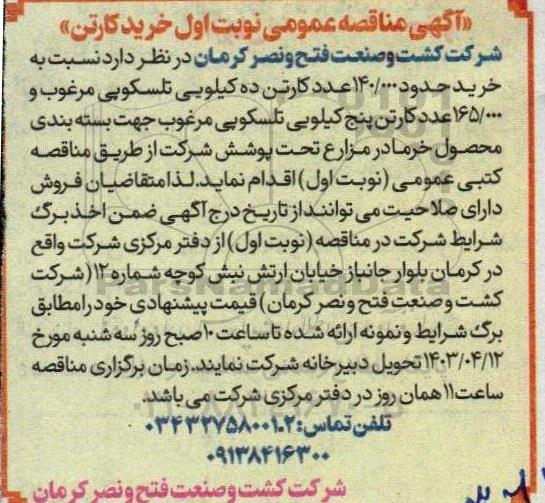 «آگهی مناقصه عمومی نوبت اول خرید کارتن»
شرکت کشت و صنعت فتح و نصر کرمان در نظر دارد نسبت به
خرید حدود ۱۴۰/۰۰۰ عدد کارتن ده کیلویی تلسکوپی مرغوب و
۱۶۵/۰۰۰ عدد کارتن پنج کیلویی تلسکوپی مرغوب جهت بسته بندی
محصول خرما در مزارع تحت پوشش شرکت از طریق مناقصه
کتبی عمومی (نوبت اول) اقدام نماید. لذا متقاضیان فروش
دارای صلاحیت می توانند از تاریخ درج آگهی ضمن اخذ برگ
شرایط شرکت در مناقصه (نوبت اول) از دفتر مرکزی شرکت واقع
در کرمان بلوار جانباز خیابان ارتش نبش کوچه شماره ۱۲ (شرکت
کشت و صنعت فتح و نصر کرمان) قیمت پیشنهادی خود را مطابق
برگ شرایط و نمونه ارائه شده تا ساعت ۱۰ صبح روز سه شنبه مورخ
۱۴۰۳/۰۴/۱۲ تحویل دبیرخانه شرکت نمایند. زمان برگزاری مناقصه
ساعت ۱۱ همان روز در دفتر مرکزی شرکت می باشد.
تلفن تماس: ۲ـ۰۳۴۳۲۷۵۸۰۰۱
۰۹۱۳۸۴۱۶۳۰۰
شرکت کشت و صنعت فتح و نصر کرمان